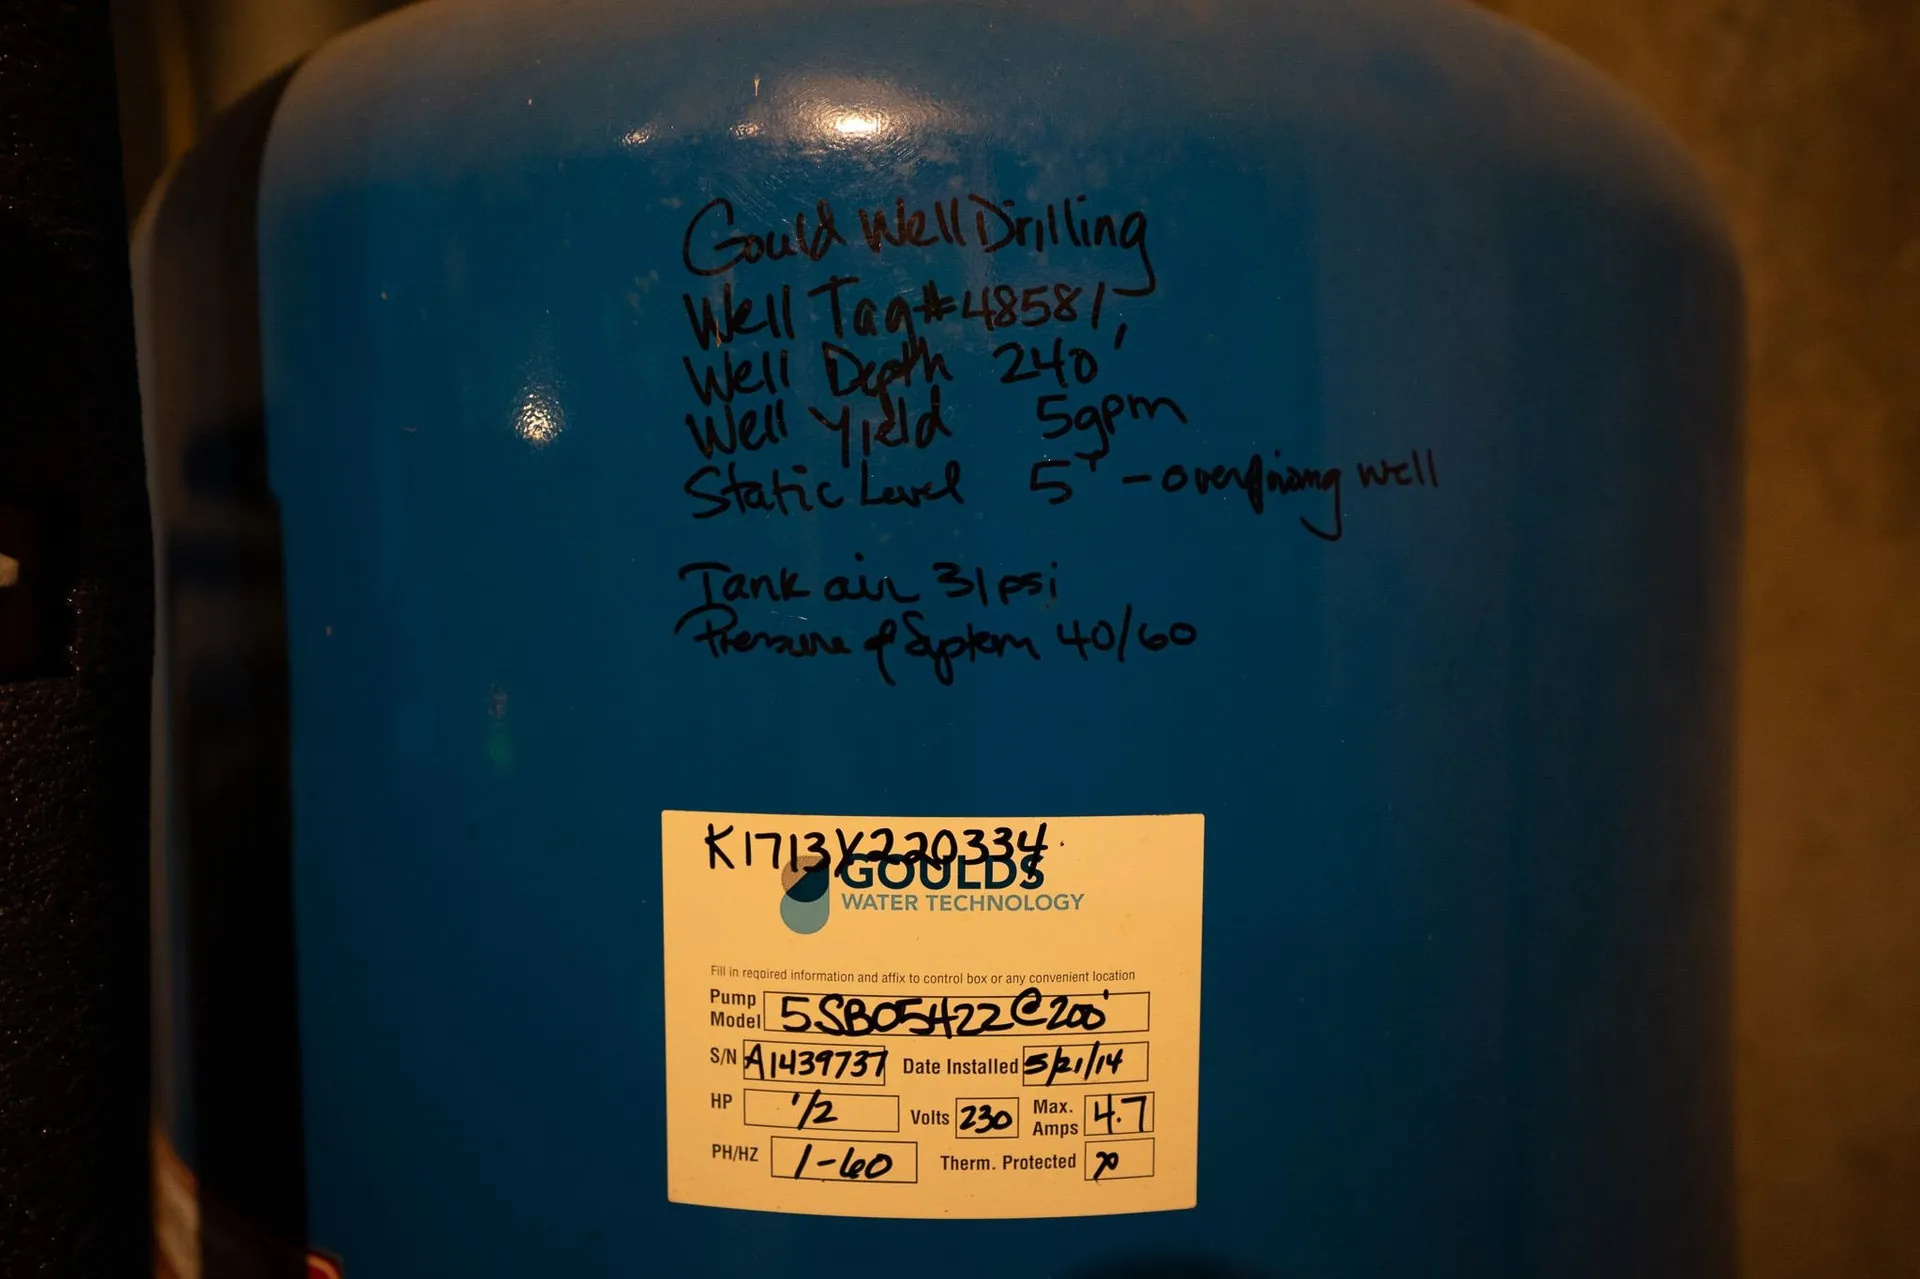 Gould Well Drilling
Well Tag# 48581
Well Depth 240'
Well Yield 5gpm
Static Level 5' - overflowing well
Tank air 31psi
Pressure of System 40/60
K1713Y220334
GOULDS
WATER TECHNOLOGY
Fill in required information and affix to control box or any convenient location
Pump Model 5SB05422@200'
S/N A1439737 Date Installed 5/21/14
HP 1/2 Volts 230 Max. Amps 4.7
PH/HZ 1-60 Therm. Protected